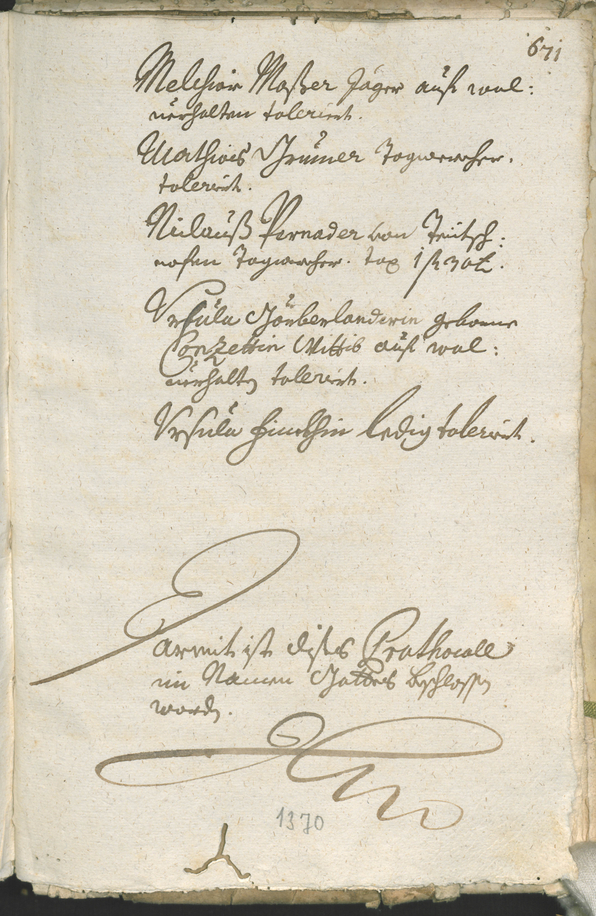 671
Melchior Moser Jäger auf wol:
uerhalten toleriert.
Mathias Gruener Tagwercher.
toleriert.
Niclauß Pernader von Teütsch:
nofen Tagwercher. tax 1 f 30 x.
Vrsula geborne
Conzettin Wittib auf wol:
uerhalten toleriert.
Vrsula ledig toleriert.
Darmit ist dises Prothocoll
im Namen Gottes beschlossen
worden.
1370